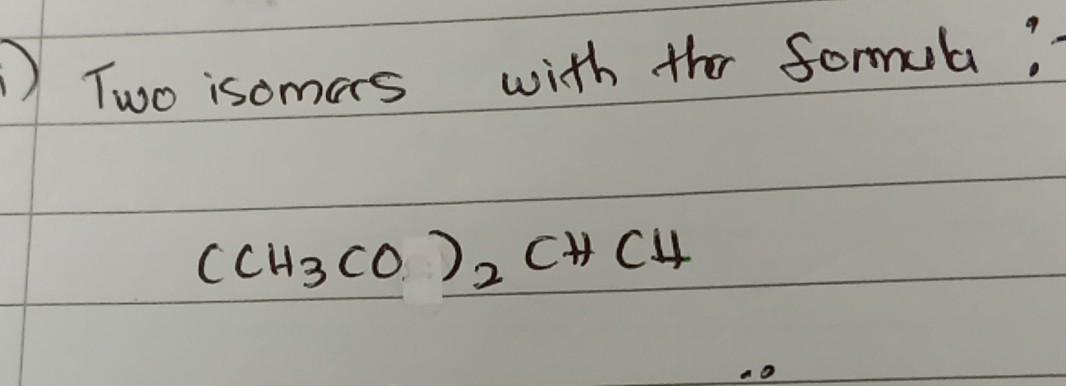 i) Two isomers with the formula :-
(CH3CO )2 CH CH